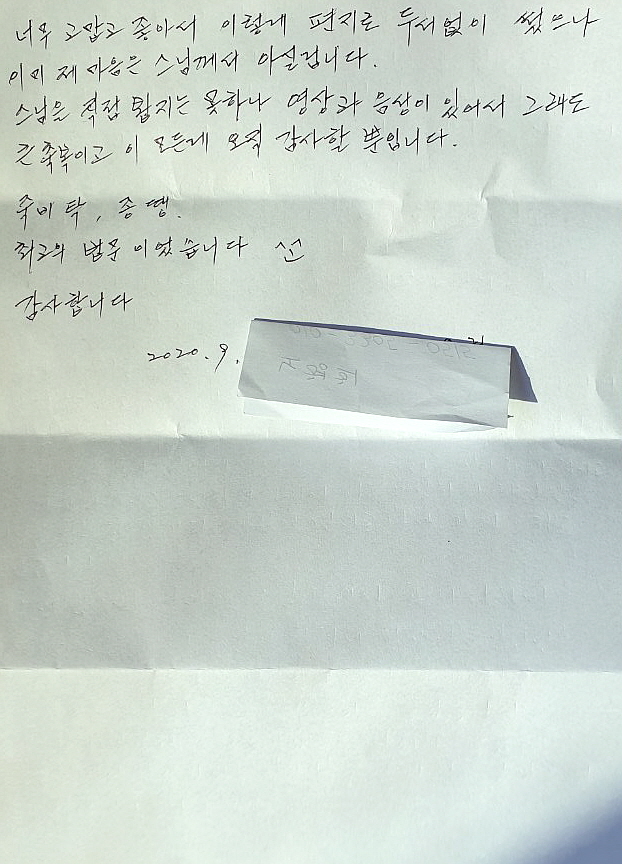 너무 고맙고 좋아서 이렇게 편지로 두서없이 썼으나
이미 제 마음은 스님께서 아실겁니다.
스님을 직접 뵙지는 못하나 영상과 음성이 있어서 그래도
큰 축복이고 이 모든게 오직 감사할 뿐입니다.
죽비 탁, 종 땡.
최고의 법문 이었습니다
감사합니다
2020. 9.